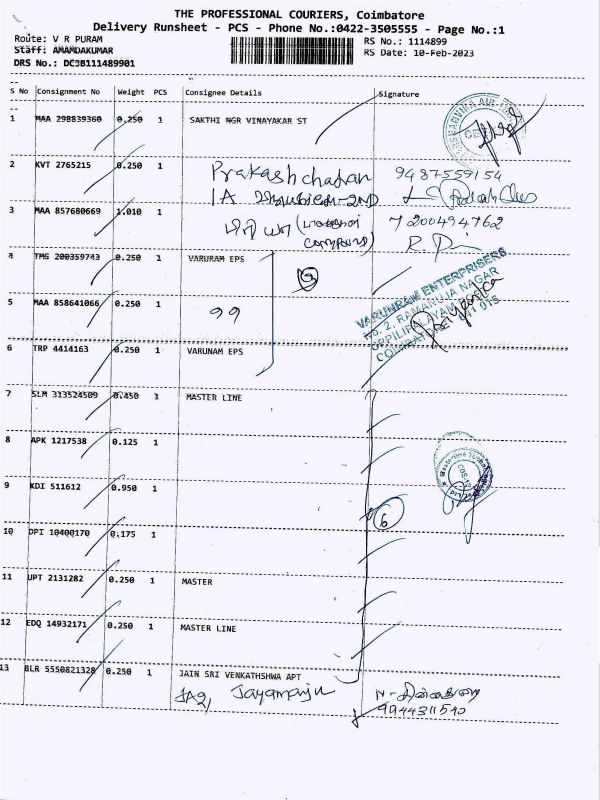 THE PROFESSIONAL COURIERS, Coimbatore
Delivery Runsheet - PCS - Phone No.:0422-3505555 - Page No.:1
Route: V R PURAM
RS No.: 1114899
Staff: AMAMDAKUMAR
RS Date: 10-Feb-2023
DRS No.: DCJB111489901
S No Consignment No Weight PCS Consignee Details Signature
1 MAA 298839360 0.250 1 SAKTHI NGR VINAYAKAR ST
2 KVT 2765215 0.250 1 Prakash 9487559154
1A
3 MAA 857680669 1.010 1 7200494762
4 TMS 200359743 0.250 1 VARURAM EPS
VARUNRAM ENTERPRISES
No. 2, RAMANUJA NAGAR
UPPILIPALAYAM
COIMBATORE 641 015
5 MAA 858641066 0.250 1 99
6 TRP 4414163 0.250 1 VARUNAM EPS
7 SLM 313524509 0.450 1 MASTER LINE
8 APK 1217538 0.125 1
9 KDI 511612 0.950 1
6
10 DPI 10400170 0.175 1
11 UPT 2131282 0.250 1 MASTER
12 EDQ 14932171 0.250 1 MASTER LINE
13 BLR 5550821328 0.250 1 JAIN SRI VENKATHSHWA APT
JA2, Jayamanju
9944311540